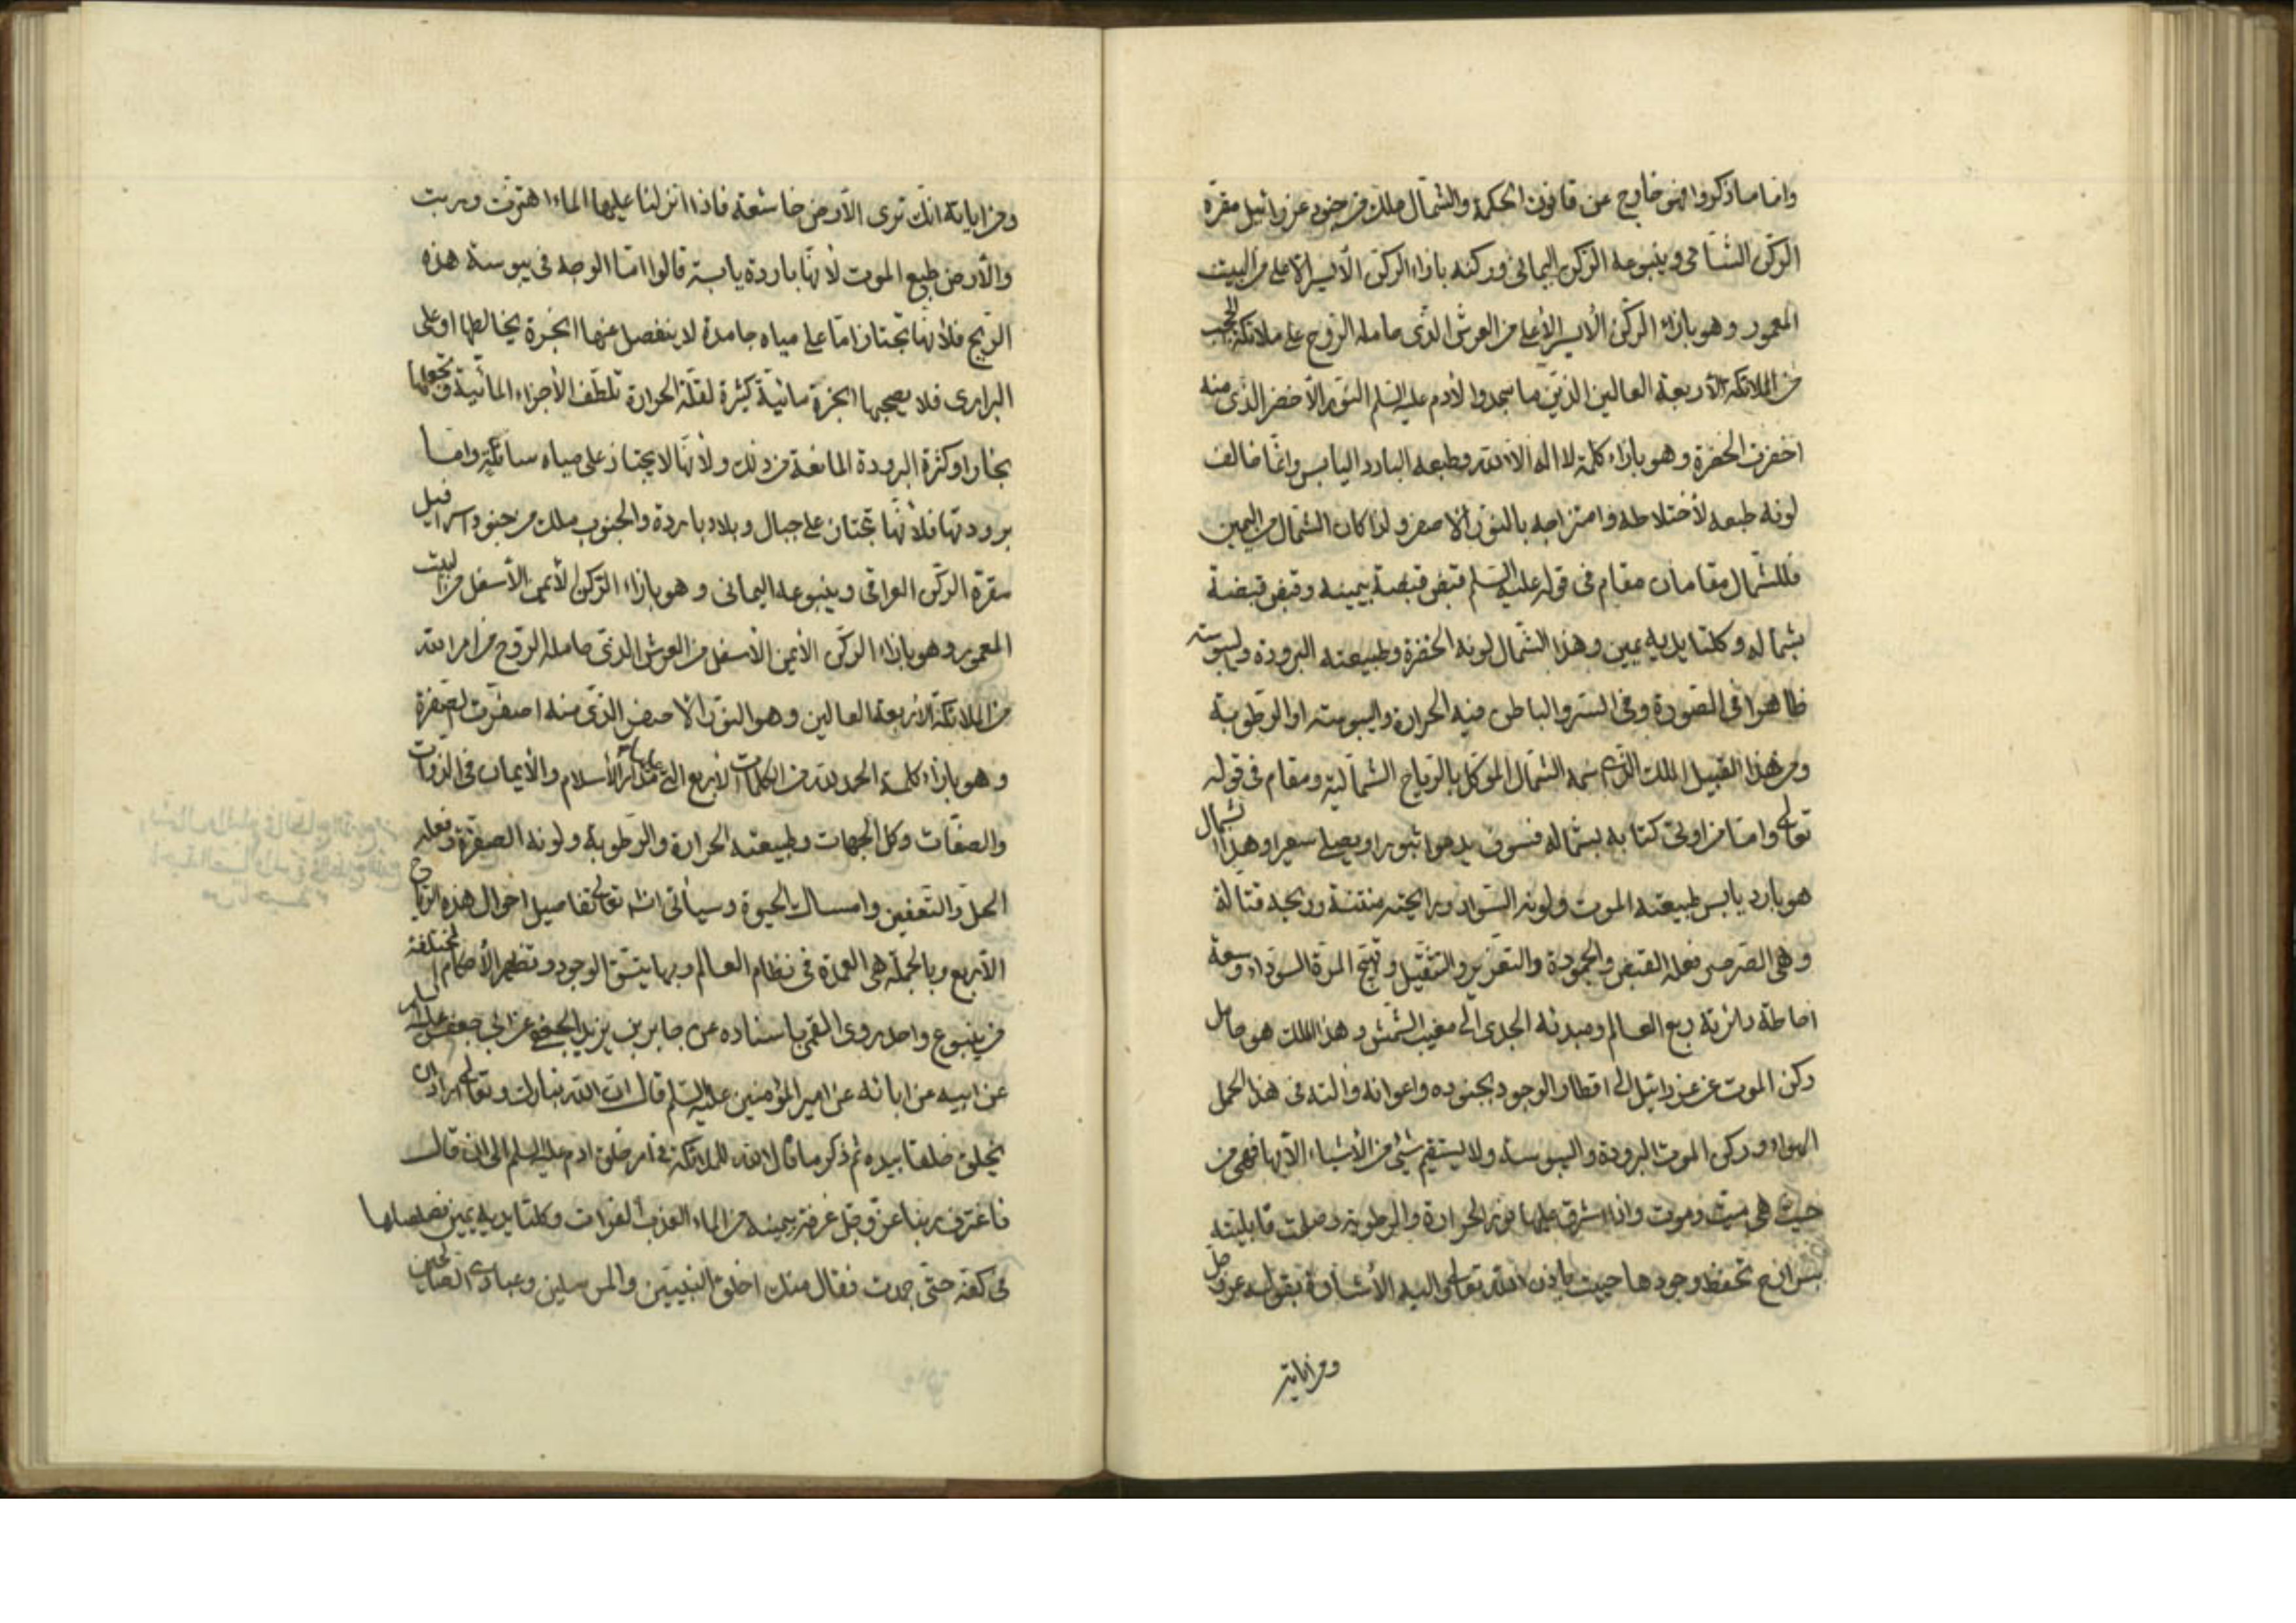 واما ما ذكروا فهو خارج عن قانون الحكمة والشمال ملك من جنود عزرائيل مقره
الركن الشامي وينبوعه الركن اليماني وركنه بازاء الركن الأيسر الاعلى من البيت
المعمور وهو بازاء الركن الأيسر الأعلى من العرش الذي حامله الروح على ملائكة الحجب
من الملائكة الأربعة العالين الذين ما سجدوا لادم عليه السلم النور الأخضر الذي منه
اخضرت الخضرة وهو بازاء كلمة لا اله الا الله وطبعه البارد اليابس وانما خالف
لونه طبعه لأختلاطه وامتزاجه بالنور الأصفر ولذا كان الشمال من اليمين
فللشمال مقامان مقام في قوله عليه السلم قبض قبضة بيمينه وقبض قبضة
بشماله وكلتا يديه يمين وهذا الشمال لونه الخضرة وطبيعته البرودة واليبوسة
ظاهرا في الصورة وفي الستر والباطن فيه الحرارة واليبوسة او الرطوبة
ومن هذا القبيل الملك الذي اسمه الشمال الموكل بالرياح الشمالية ومقام في قوله
تعالى واما من اوتى كتابه بشماله فسوف يدعوا ثبورا ويصلى سعيرا وهذا الشمال
هو بارد يابس طبيعته الموت ولونه السواد ورايحته منتنة وريحه قتالة
وهي الصرصر فعله القبض والجمودة والتعزير والتثقيل وتهيج المرة السوداء وسعة
احاطة دائرته ربع العالم ومبدئه الجدى الى مغيب الشمس وهذا الملك هو حامل
ركن الموت عن عزرائيل الى اقطار الوجود بجنوده واعوانه والته في هذا الحمل
الهواء وركن الموت البرودة واليبوسة ولا يستقيم شئ من الأشياء الا بها فهي من
حيث هي ميت وموت واذا اشرق عليها نور الحرارة والرطوبة وصلت قابليته
تحفظ وجودها حييت باذن الله تعالى اليه الأشارة بقوله عز وجل
ومن اياته
ومن اياته انك ترى الأرض خاشعة فاذا انزلنا عليها الماء اهتزت وربت
والأرض طبع الموت لأنها باردة يابسة قالوا اما الوجه في يبوسة هذه
الريح فلأنها تجتاز اما على مياه جامدة لا ينفصل عنها ابخرة يخالطها او على
البرارى فلا يصحبها ابخرة مائية كثيرة لقلة الحرارة تلطف الأجزاء المائية وتحولها
بخارا وكثرة البرودة المانعة من ذلك ولأنها لا يجتاز على مياه سائلة واما
برودتها فلأنها تجتاز على جبال وبلاد باردة والجنوب ملك من جنود اسرافيل
مقره الركن العراقي وينبوعه اليماني وهو بازاء الركن الأيمن الأسفل من البيت
المعمور وهو بازاء الركن الأيمن الأسفل من العرش الذي حامله الروح من امر الله
من الملائكة الأربعة العالين وهو النور الأصفر الذي منه اصفرت الصفرة
وهو بازاء كلمة الحمد لله من الكلمات الأربع التي عليها مدار الأسلام والأيمان في الذوات
والصفات وكل الجهات وطبيعته الحرارة والرطوبة ولونه الصفرة وفعله
الحل والتعفين وامساك الحيوة وسيأتي انشاء تعالى تفاصيل احوال هذه الرياح
الأربع وبالجملة هي العمدة في نظام العالم وبها يتسق الوجود وتظهر الأحكام المختلفة
من ينبوع واحد روى القمي باسناده عن جابر بن يزيد الجعفي عن ابي جعفر عليه السلم
عن ابيه عن ابائه عن امير المؤمنين عليه السلم قال ان الله تبارك وتعالى اراد ان
يخلق خلقا بيده ثم ذكر ما قال الله للملائكة في امر خلق ادم عليه السلم الى ان قال
فاغترف ربنا عز وجل غرفة بيمينه من الماء العذب الفرات وكلتا يديه يمين فصلصلها
في كفه حتى جمدت فقال منك اخلق النبيين والمرسلين وعبادي الصالحين